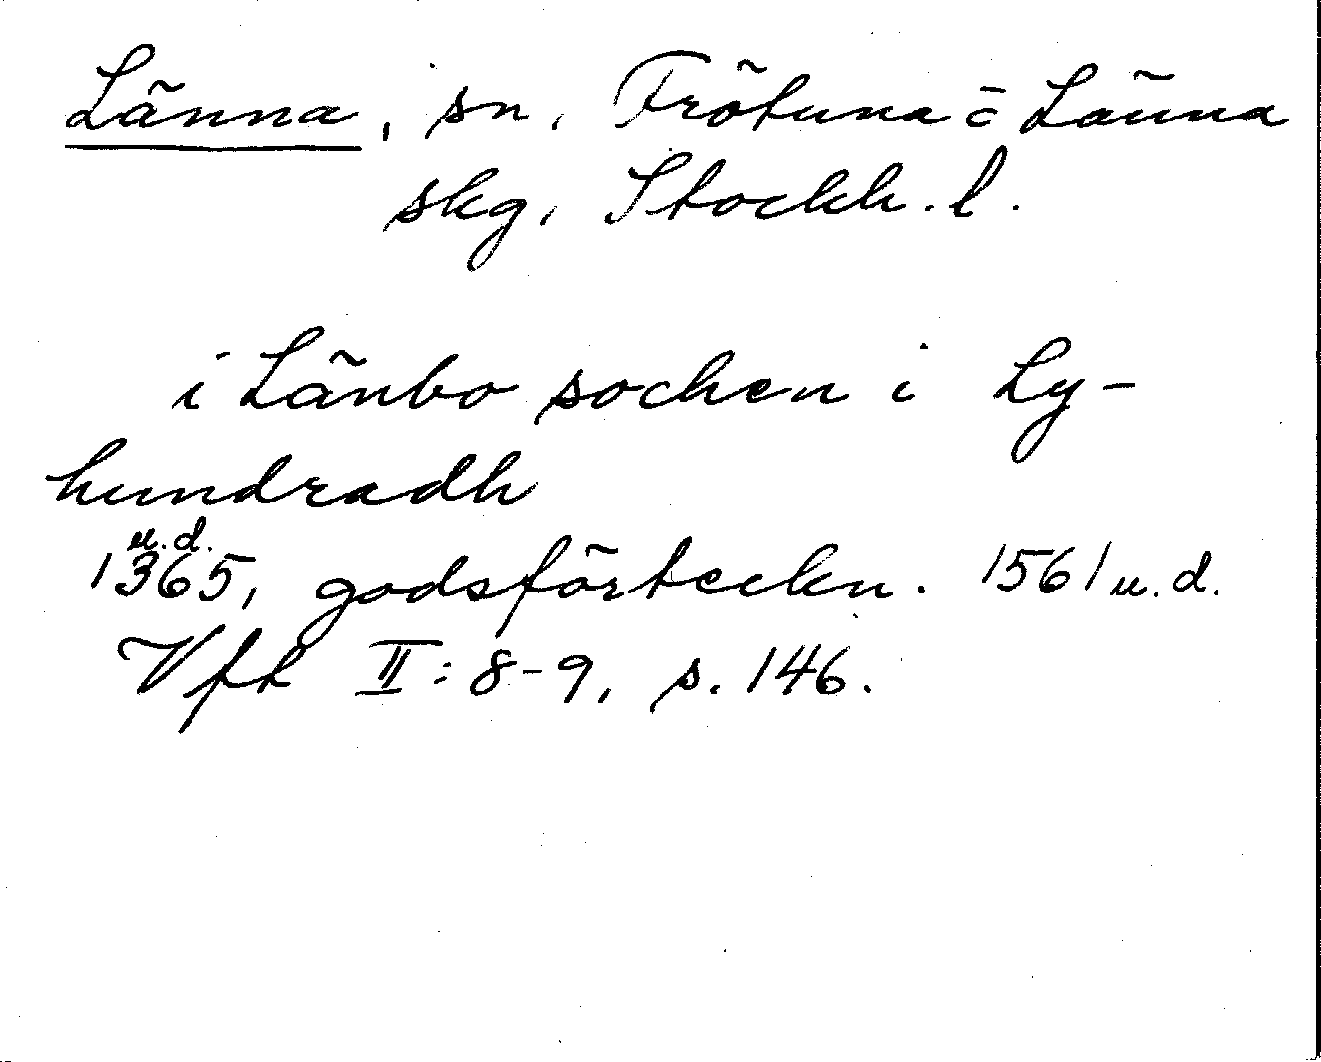 Länna, sn, Frötuna o Länna
skg, Stockh. l.
i Länbo sochen i Ly-
hundradh
u.d.
1365, godsförteckn. 1561 u.d.
Vfk II: 8-9, s. 146.